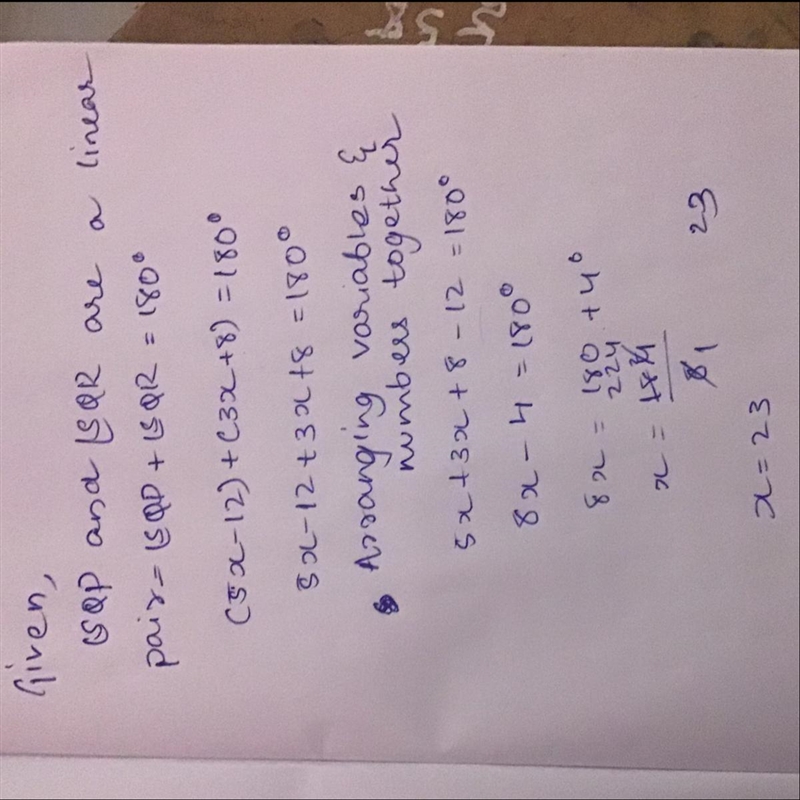 Given,
∠SQP and ∠SQR are a linear
pair = ∠SQP + ∠SQR = 180°
(5x-12) + (3x+8) = 180°
5x-12+3x+8 = 180°
Arranging variables &
numbers together
5x+3x+8-12 = 180°
8x-4 = 180°
8x = 180 + 4°
x = 184
8 1
23
x = 23